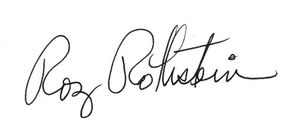 Roz Rothstein